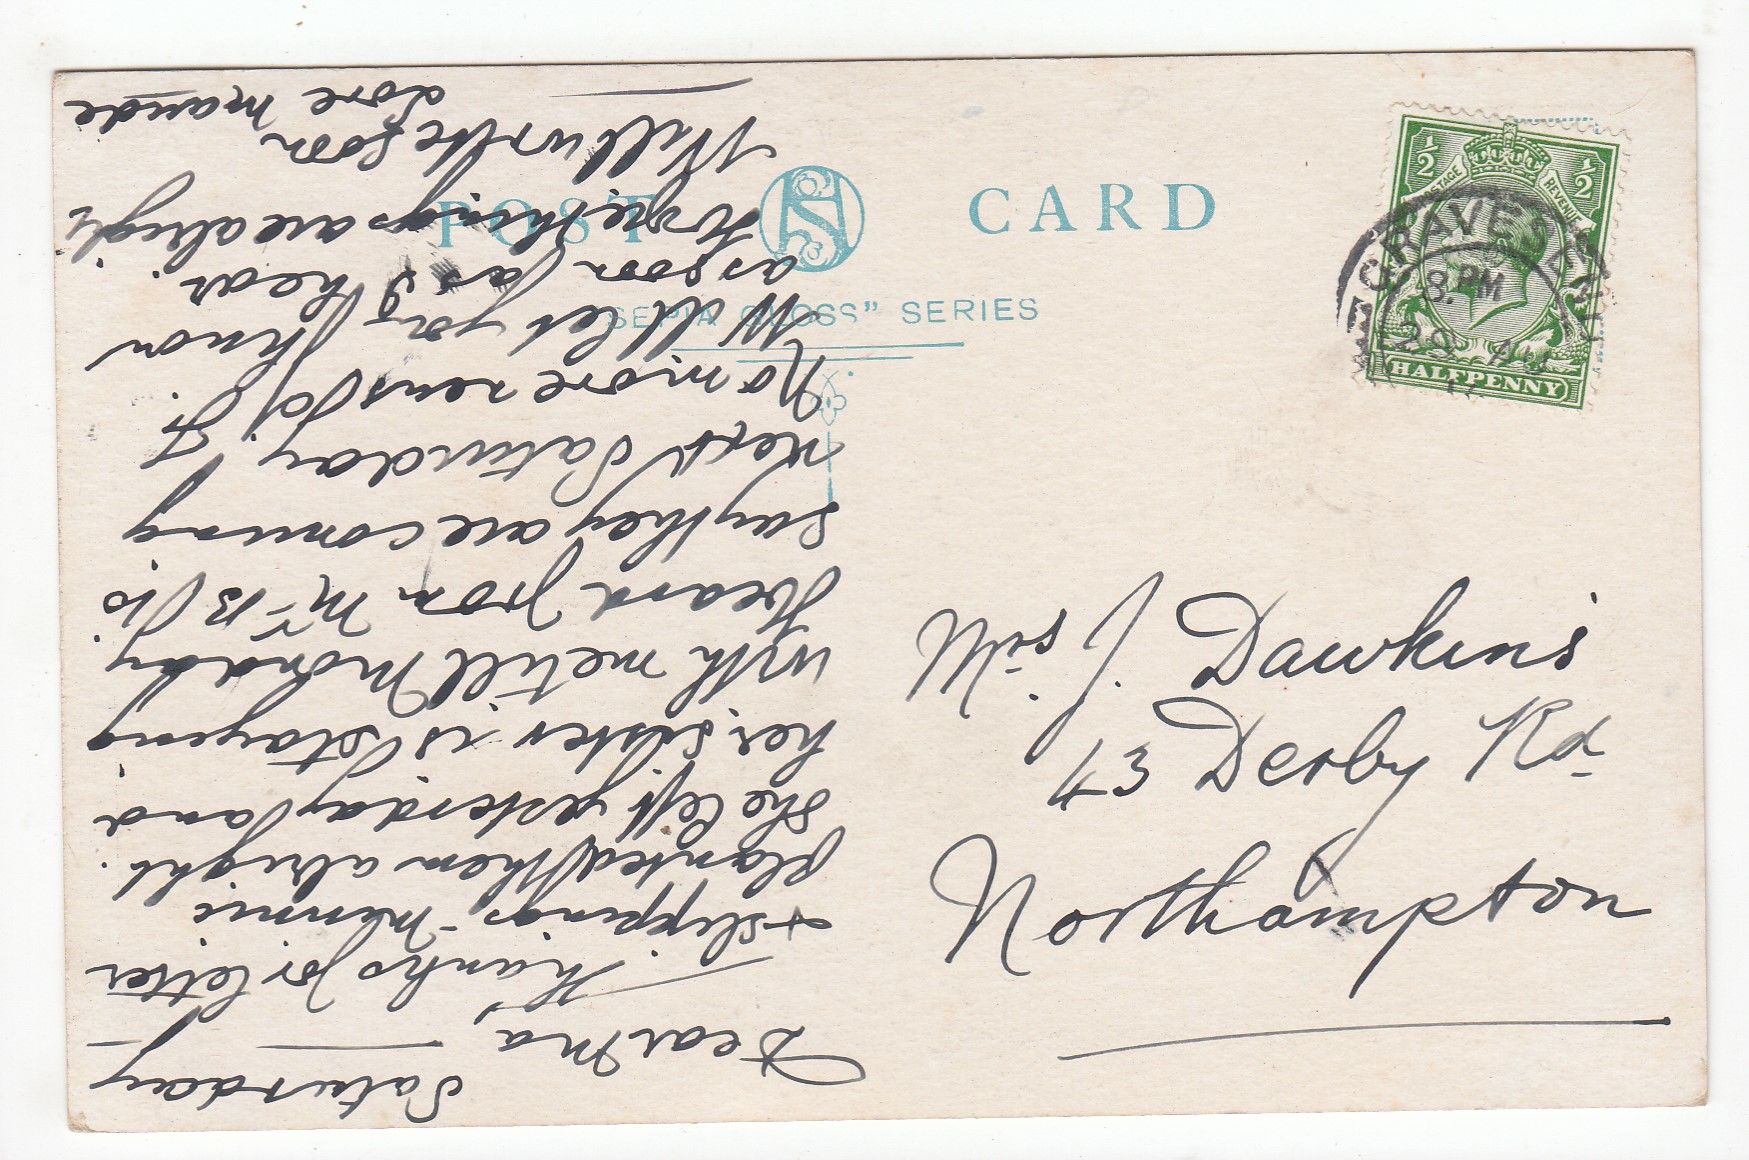 POST CARD
"SEPIA GLOSS" SERIES
½ ½
POSTAGE REVENUE
HALFPENNY
GRAVESEND
8. PM
29 AU
Mrs J. Dawkins
43 Derby Rd
Northampton
Saturday
Dear Ma,
Thanks for letter
+ slippings Minnie
planted them alright.
She left yesterday and
her sister is staying
with me till Monday
Heard from Mr B to
say they are coming
next Saturday
No more news of F.
Will let you know
as soon as I hear.
Hope things are alright
Will write soon
Love Maude